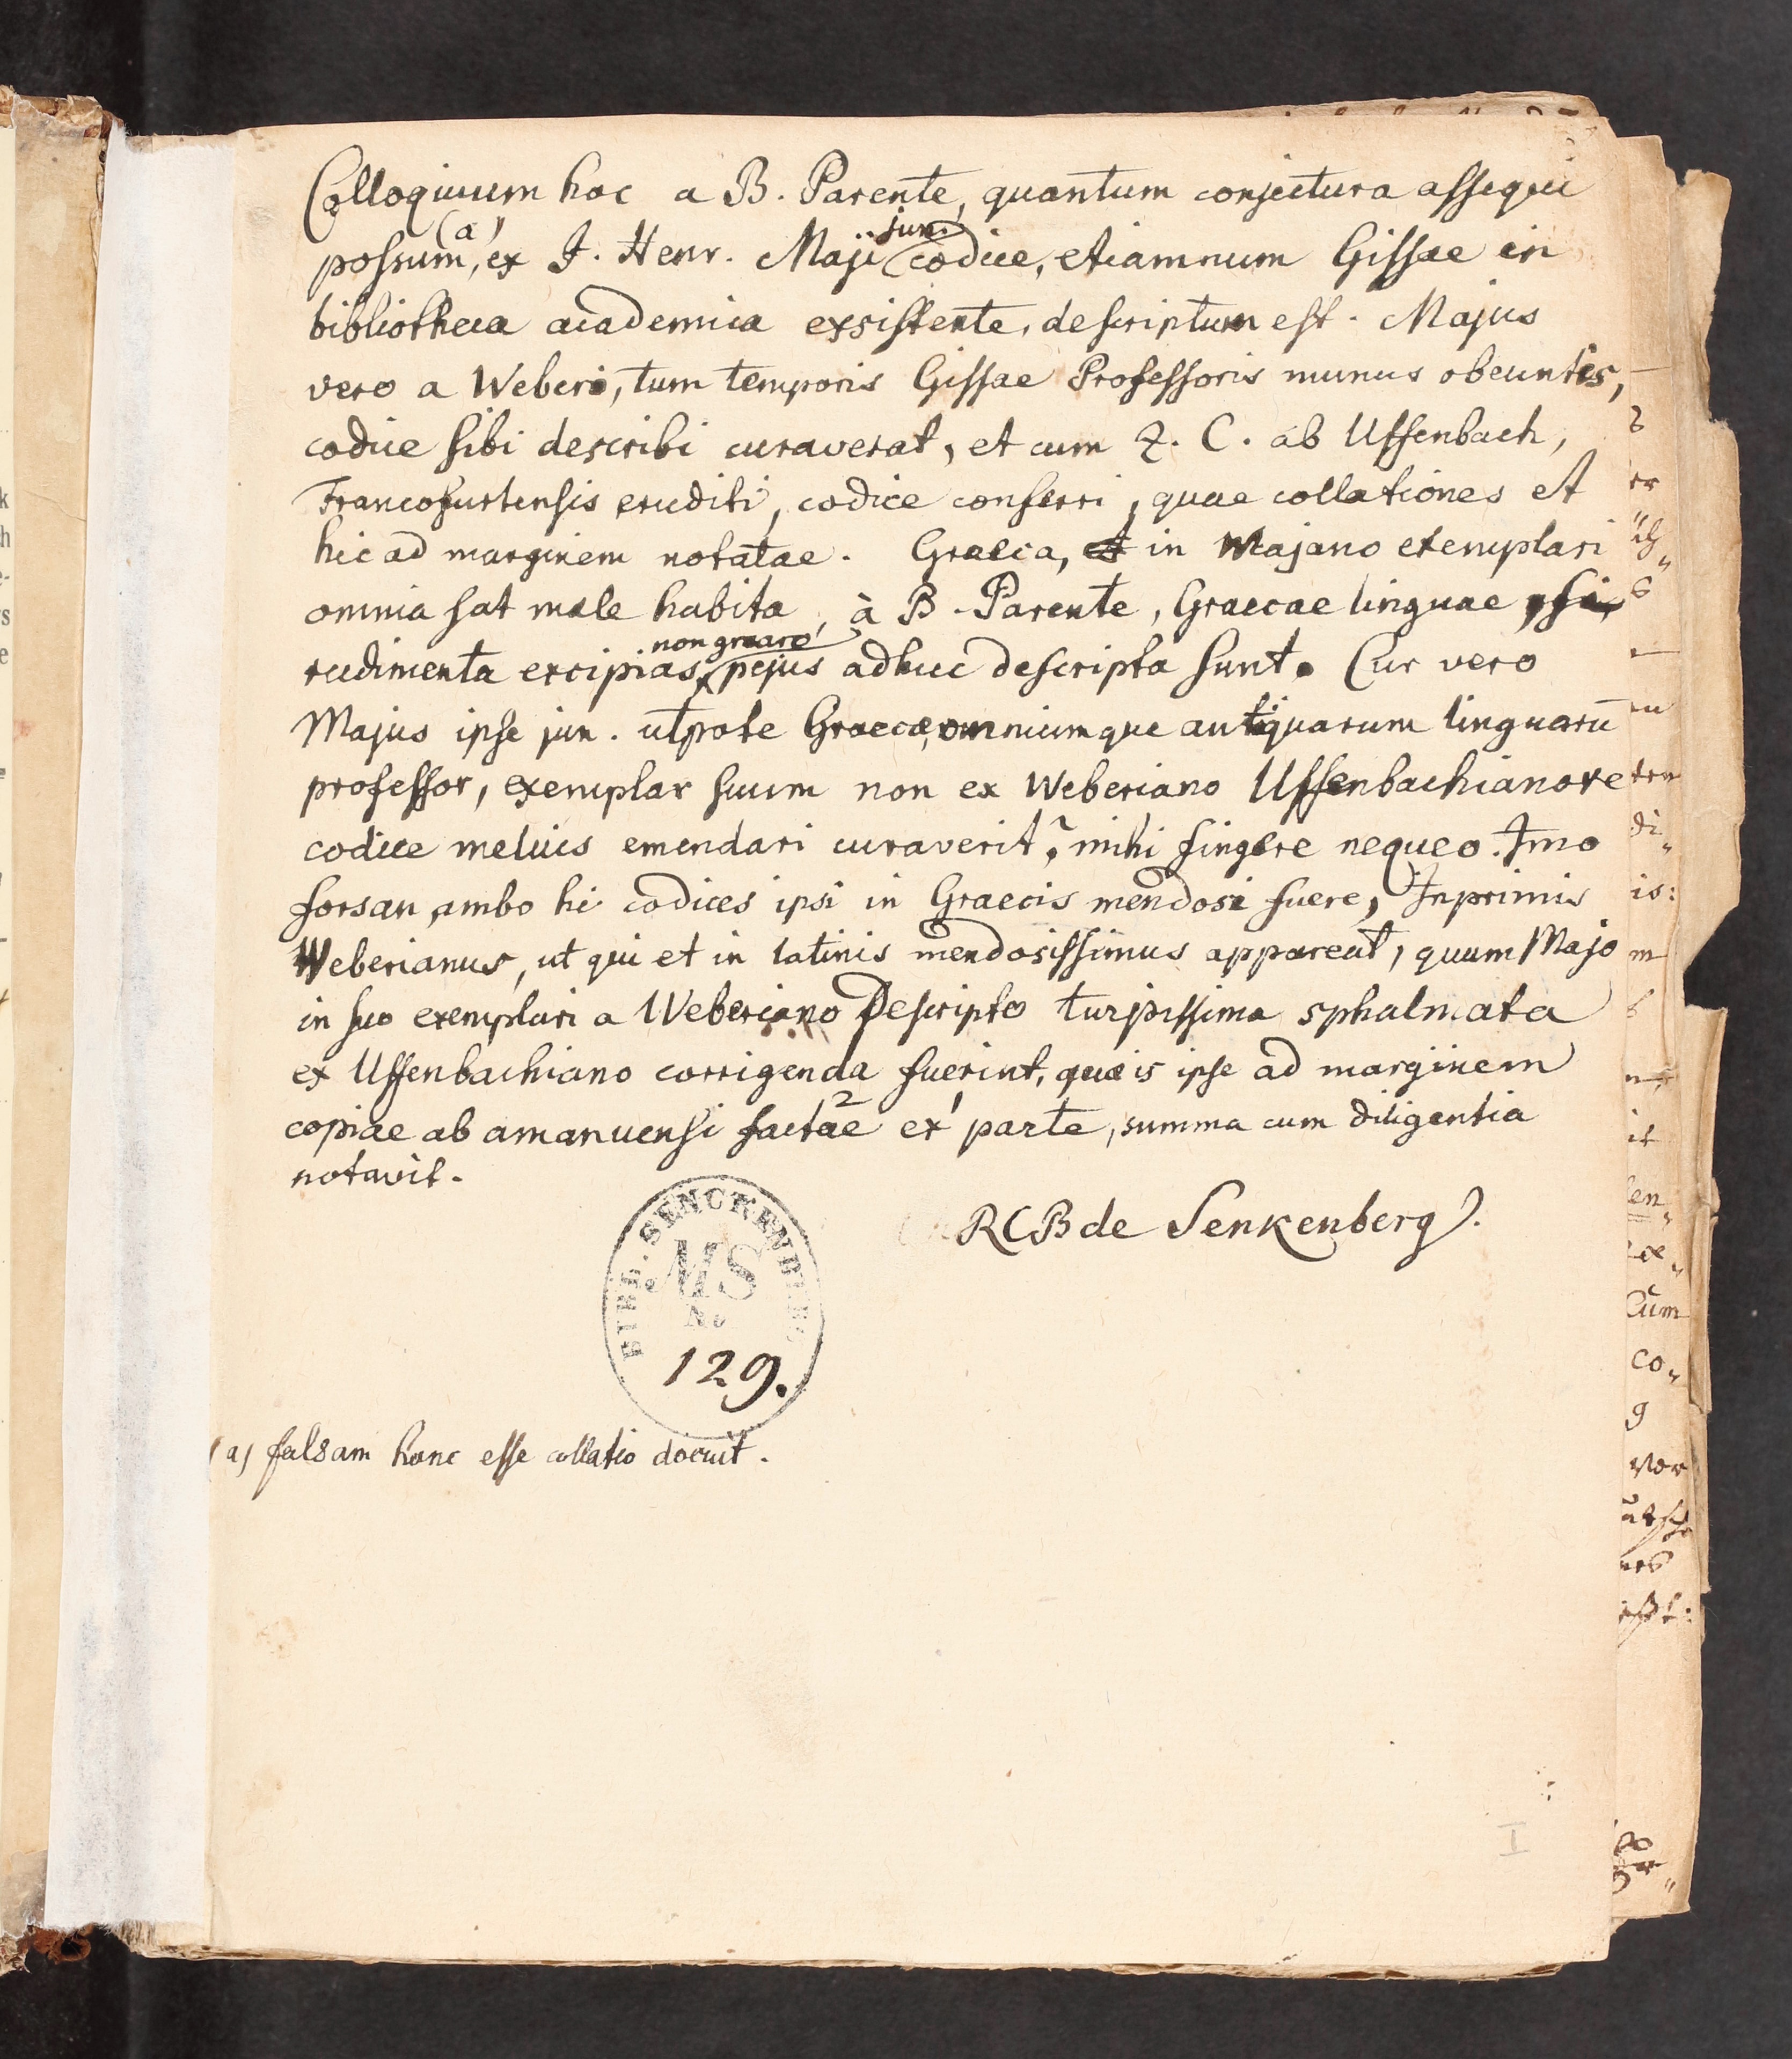 Colloquium hoc a B. Parente, quantum conjectura assequi
possum, (a) ex J. Henr. Maji jun. codice, etiamnum Gissae in
bibliotheca academica exsistente, descriptum est. Majus
vero a Weberi, tum temporis Gissae Professoris munus obeuntis,
codice sibi describi curaverat, et cum Z. C. ab Uffenbach,
Francofurtensis eruditi, codice conferri, quae collationes et
hic ad marginem notatae. Graeca, in Majano exemplari
omnia sat male habita, à B. Parente, Graecae linguae, si
rudimenta excipias, non gnaro, pejus adhuc descripta sunt. Cur vero
Majus ipse jun. utpote Graecae, omniumque antiquarum linguarū
professor, exemplar suum non ex Weberiano Uffenbachianove
codice melius emendari curaverit, mihi fingere nequeo. Imo
forsan ambo hi codices ipsi in Graecis mendosi fuere, Inprimis
Weberianus, ut qui et in latinis mendosissimus appareat, quum Majo
in suo exemplari a Weberiano Descripto turpissima sphalmata
ex Uffenbachiano corrigenda fuerint, quae is ipse ad marginem
copiae ab amanuensi factae 2 ex 1 parte, summa cum diligentia
notavit.
RCB de Senkenberg.
BIBL. SENCKENBERG.
MS
No
129.
(a) falsam hanc esse collatio docuit.
I